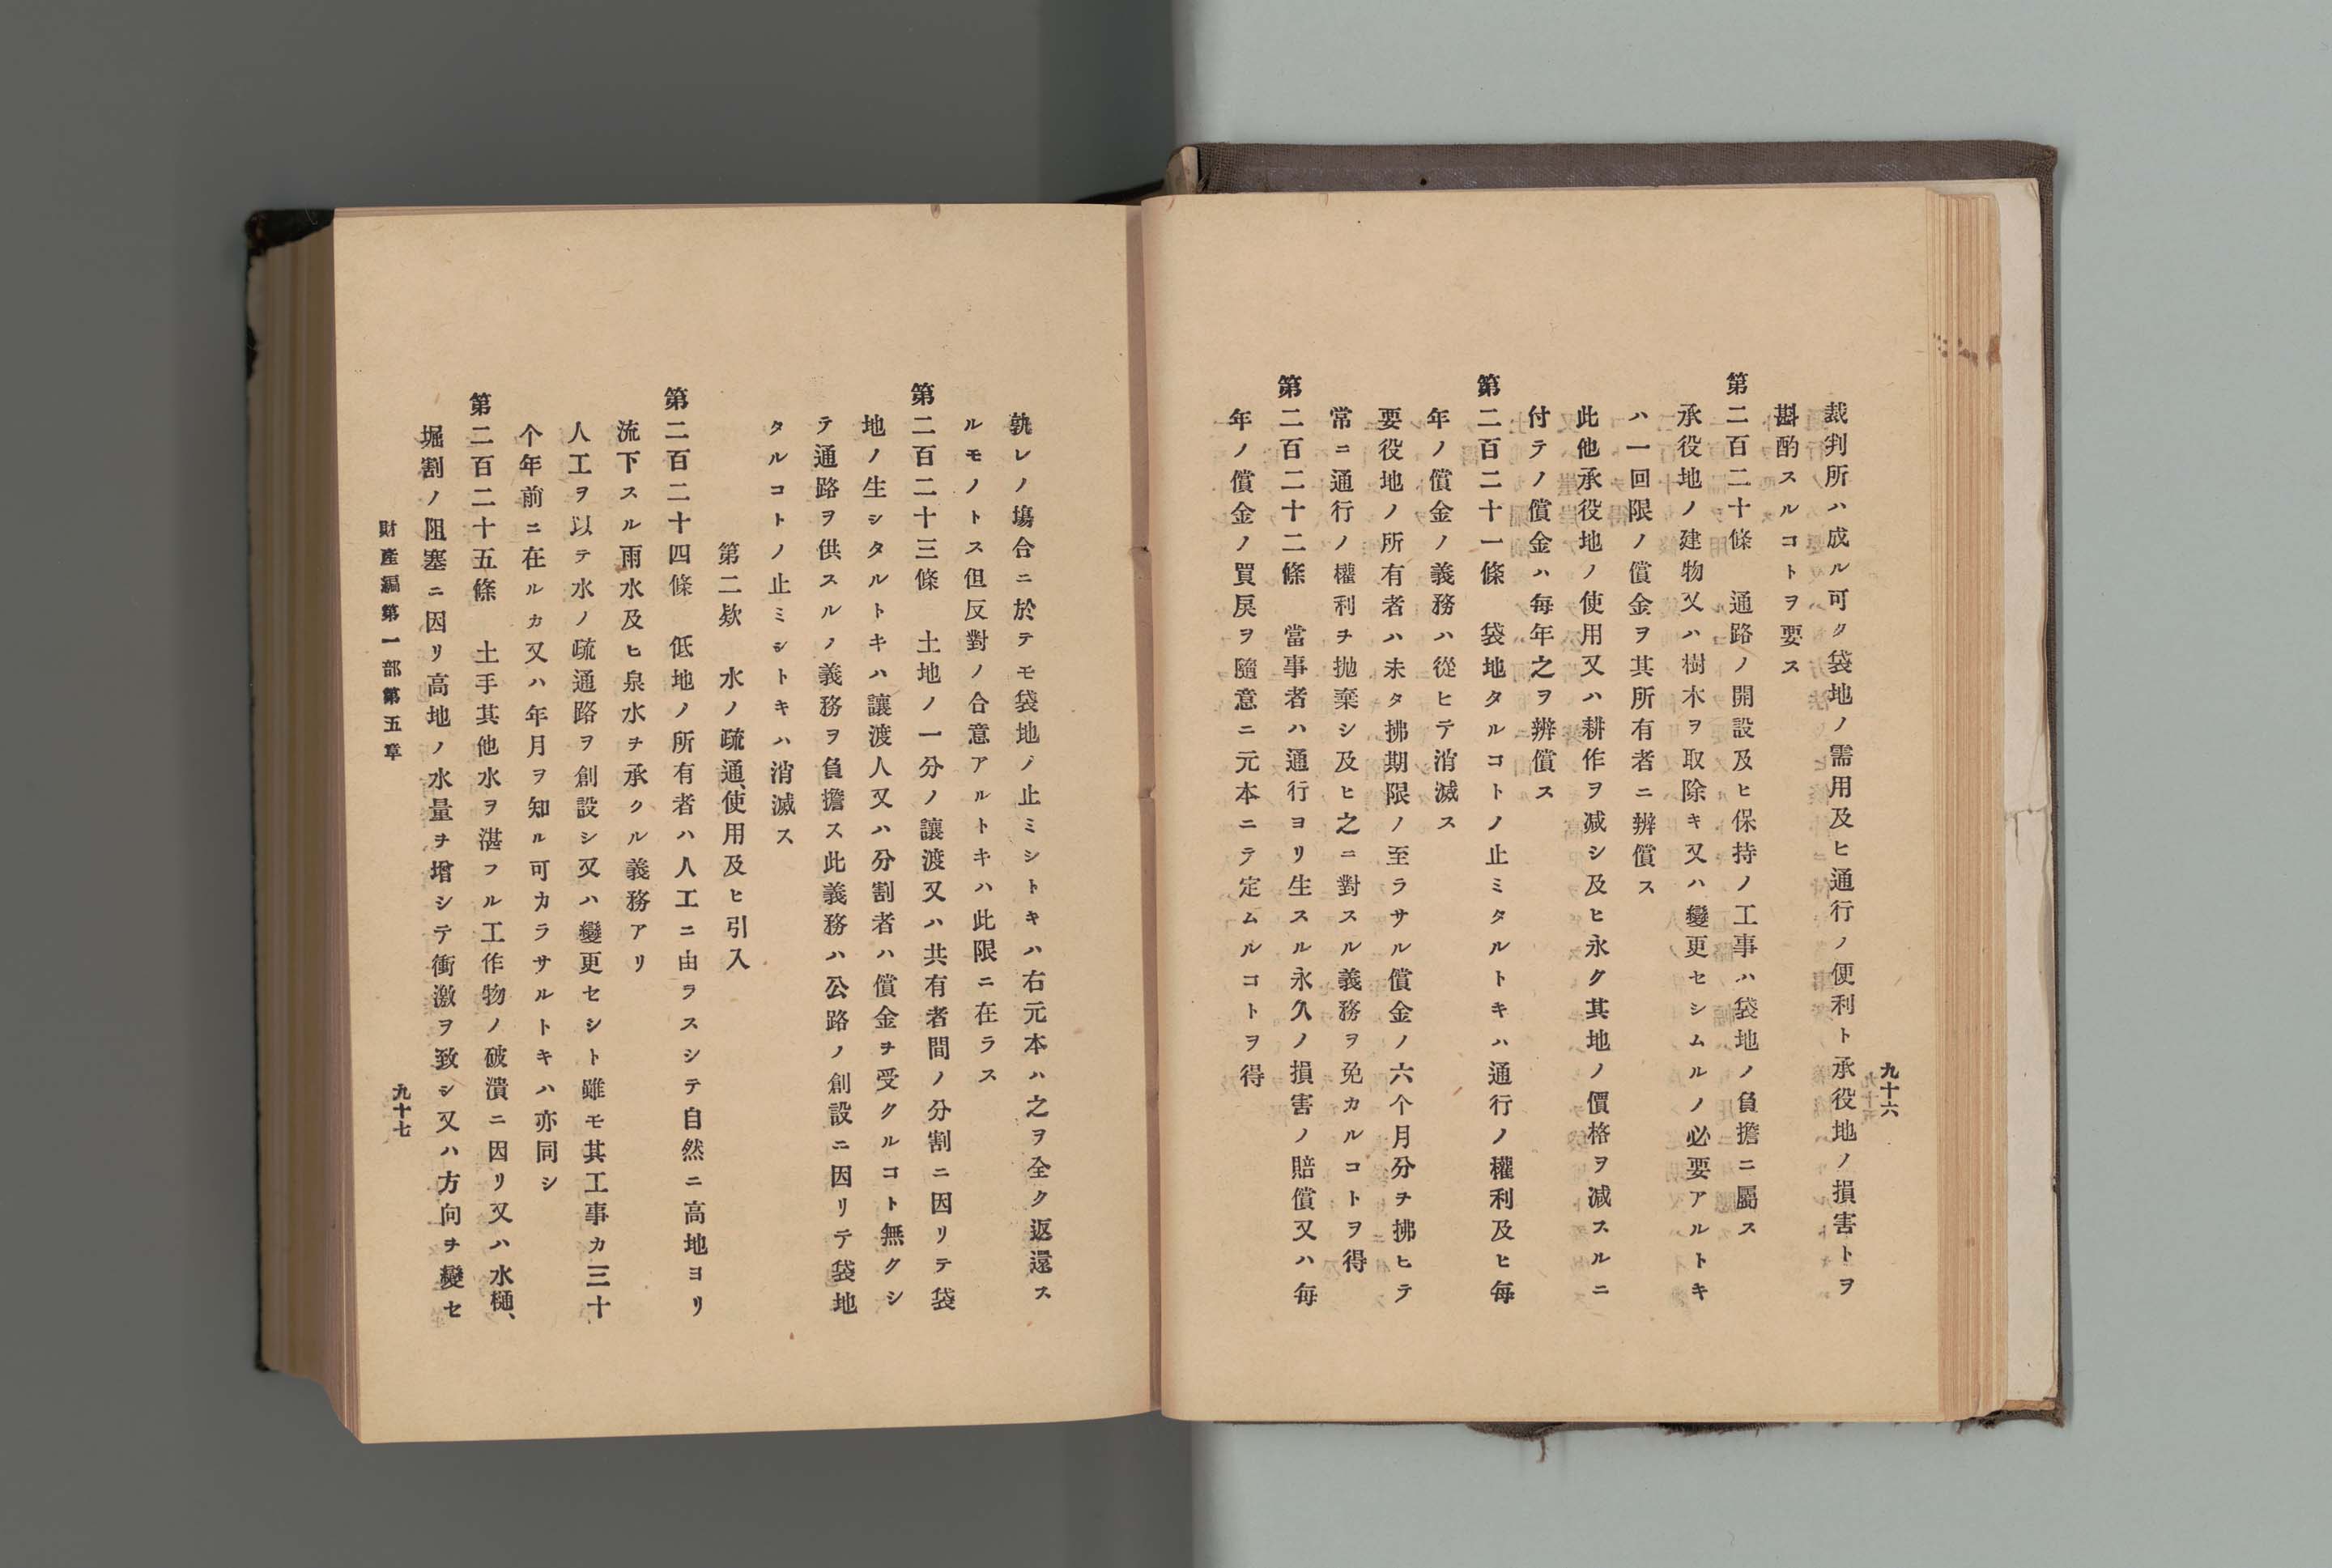 九十六
裁判所ハ成ル可ク袋地ノ需用及ヒ通行ノ便利ト承役地ノ損害トヲ
斟酌スルコトヲ要ス
第二百二十條　通路ノ開設及ヒ保持ノ工事ハ袋地ノ負擔ニ屬ス
承役地ノ建物又ハ樹木ヲ取除キ又ハ變更セシムルノ必要アルトキ
ハ一回限ノ償金ヲ其所有者ニ辨償ス
此他承役地ノ使用又ハ耕作ヲ减シ及ヒ永ク其地ノ價格ヲ减スルニ
付テノ償金ハ毎年之ヲ辨償ス
第二百二十一條　袋地タルコトノ止ミタルトキハ通行ノ權利及ヒ毎
年ノ償金ノ義務ハ從ヒテ消滅ス
要役地ノ所有者ハ未タ拂期限ノ至ラサル償金ノ六个月分ヲ拂ヒテ
常ニ通行ノ權利ヲ抛棄シ及ヒ之ニ對スル義務ヲ免カルコトヲ得
第二百二十二條　當事者ハ通行ヨリ生スル永久ノ損害ノ賠償又ハ毎
年ノ償金ノ買戻ヲ隨意ニ元本ニテ定ムルコトヲ得
孰レノ塲合ニ於テモ袋地ノ止ミシトキハ右元本ハ之ヲ全ク返還ス
ルモノトス但反對ノ合意アルトキハ此限ニ在ラス
第二百二十三條　土地ノ一分ノ讓渡又ハ共有者間ノ分割ニ因リテ袋
地ノ生シタルトキハ讓渡人又ハ分割者ハ償金ヲ受クルコト無クシ
テ通路ヲ供スルノ義務ヲ負擔ス此義務ハ公路ノ創設ニ因リテ袋地
タルコトノ止ミシトキハ消滅ス
第二欵　水ノ疏通、使用及ヒ引入
第二百二十四條　低地ノ所有者ハ人工ニ由ラスシテ自然ニ高地ヨリ
流下スル雨水及ヒ泉水ヲ承クル義務アリ
人工ヲ以テ水ノ疏通路ヲ創設シ又ハ變更セシト雖モ其工事カ三十
个年前ニ在ルカ又ハ年月ヲ知ル可カラサルトキハ亦同シ
第二百二十五條　土手其他水ヲ湛フル工作物ノ破潰ニ因リ又ハ水樋、
堀割ノ阻塞ニ因リ高地ノ水量ヲ增シテ衝激ヲ致シ又ハ方向ヲ變セ
財產編第一部第五章
九十七